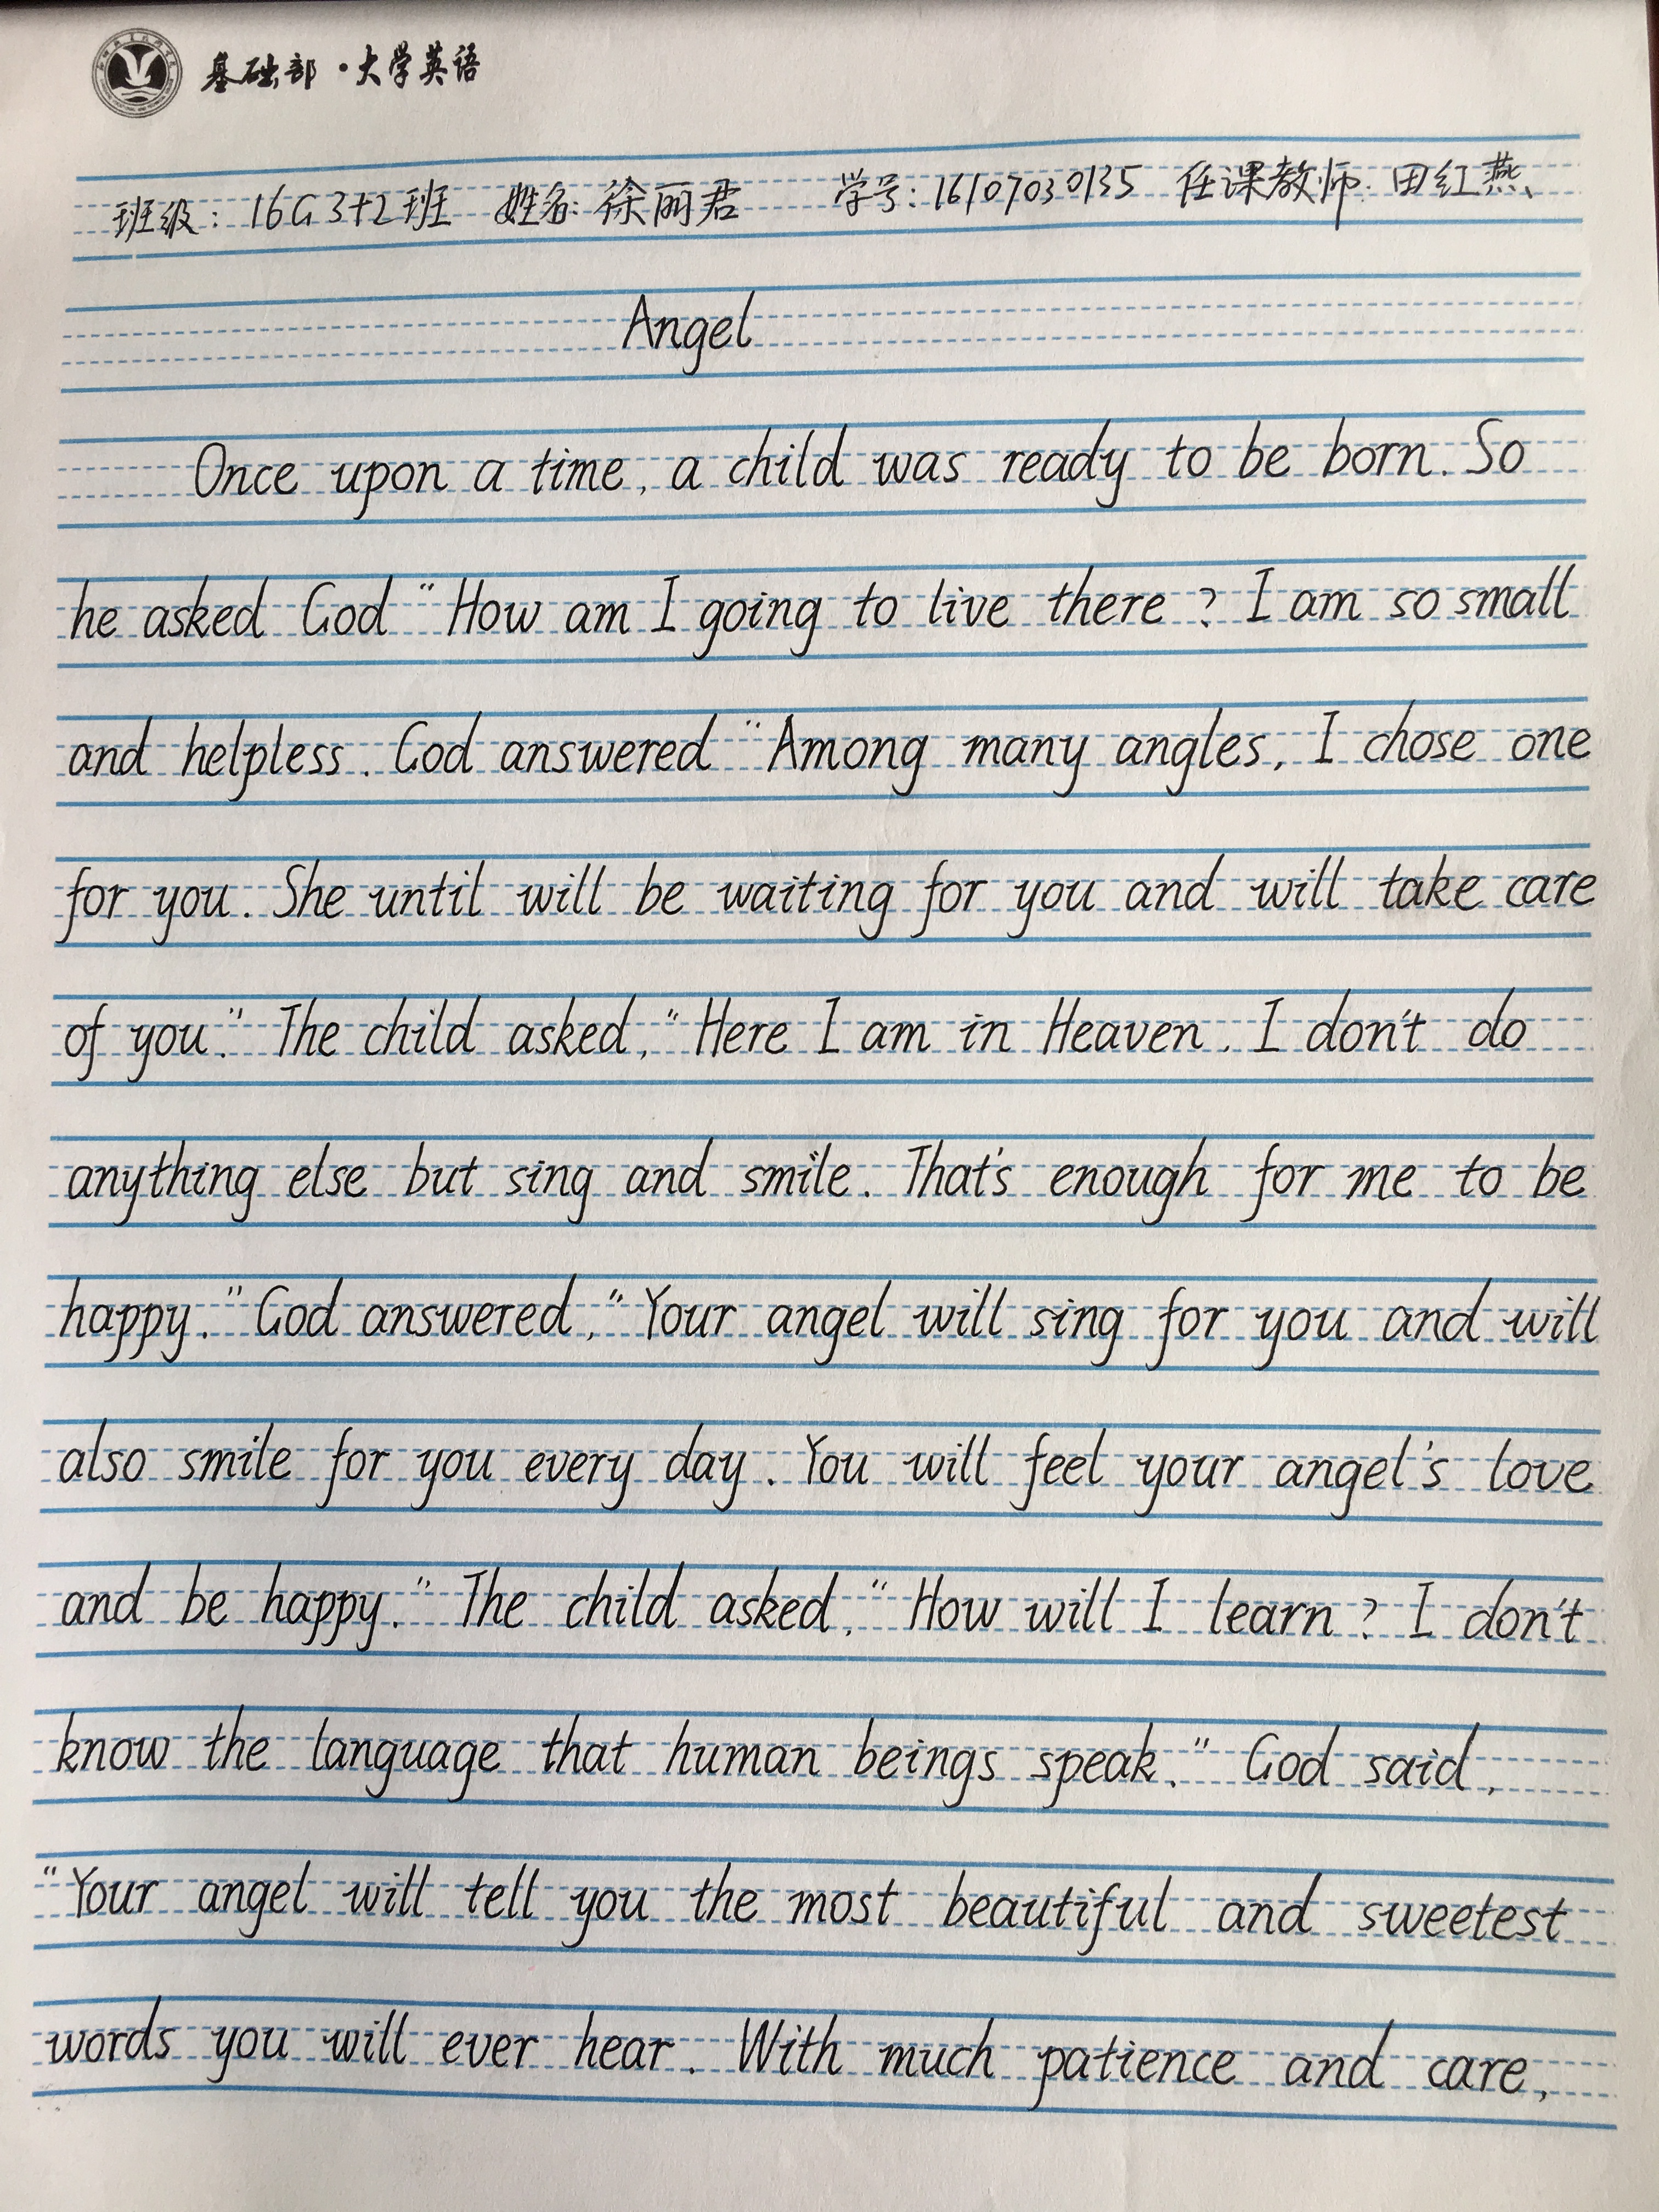 基础部·大学英语
班级：16G3+2班 姓名：徐丽君 学号：16107030135 任课教师：田红燕
Angel
Once upon a time, a child was ready to be born. So
he asked God "How am I going to live there? I am so small
and helpless. God answered "Among many angles, I chose one
for you. She until will be waiting for you and will take care
of you." The child asked, "Here I am in Heaven. I don't do
anything else but sing and smile. That's enough for me to be
happy." God answered, "Your angel will sing for you and will
also smile for you every day. You will feel your angel's love
and be happy." The child asked, "How will I learn? I don't
know the language that human beings speak." God said,
"Your angel will tell you the most beautiful and sweetest
words you will ever hear. With much patience and care,